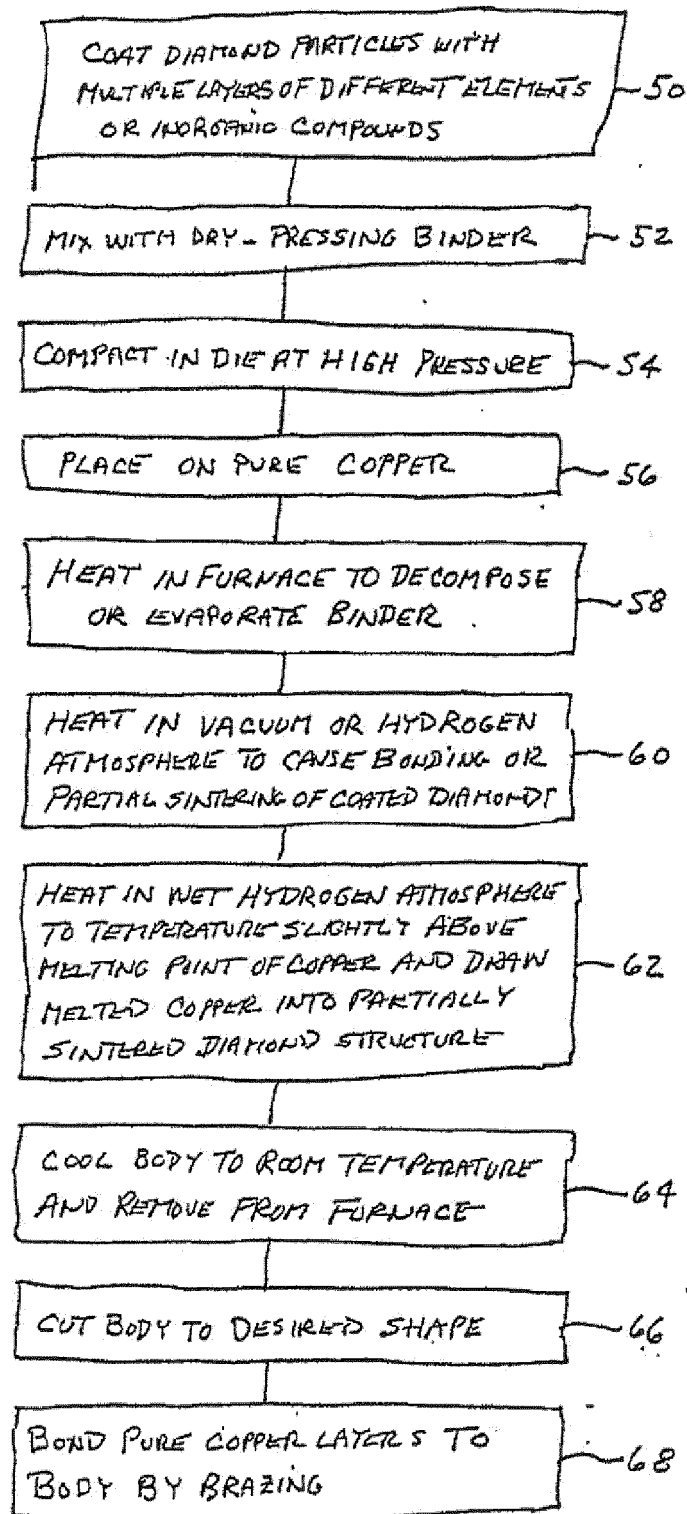 COAT DIAMOND PARTICLES WITH
MULTIPLE LAYERS OF DIFFERENT ELEMENTS
OR INORGANIC COMPOUNDS
50
MIX WITH DRY-PRESSING BINDER
52
COMPACT IN DIE AT HIGH PRESSURE
54
PLACE ON PURE COPPER
56
HEAT IN FURNACE TO DECOMPOSE
OR EVAPORATE BINDER
58
HEAT IN VACUUM OR HYDROGEN
ATMOSPHERE TO CAUSE BONDING OR
PARTIAL SINTERING OF COATED DIAMONDS
60
HEAT IN WET HYDROGEN ATMOSPHERE
TO TEMPERATURE SLIGHTLY ABOVE
MELTING POINT OF COPPER AND DRAW
MELTED COPPER INTO PARTIALLY
SINTERED DIAMOND STRUCTURE
62
COOL BODY TO ROOM TEMPERATURE
AND REMOVE FROM FURNACE
64
CUT BODY TO DESIRED SHAPE
66
BOND PURE COPPER LAYERS TO
BODY BY BRAZING
68